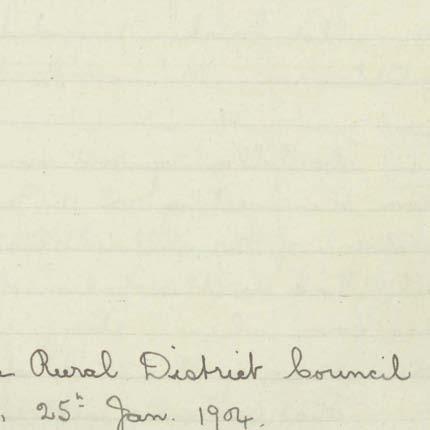 Rural District Council
25th Jan. 1904.